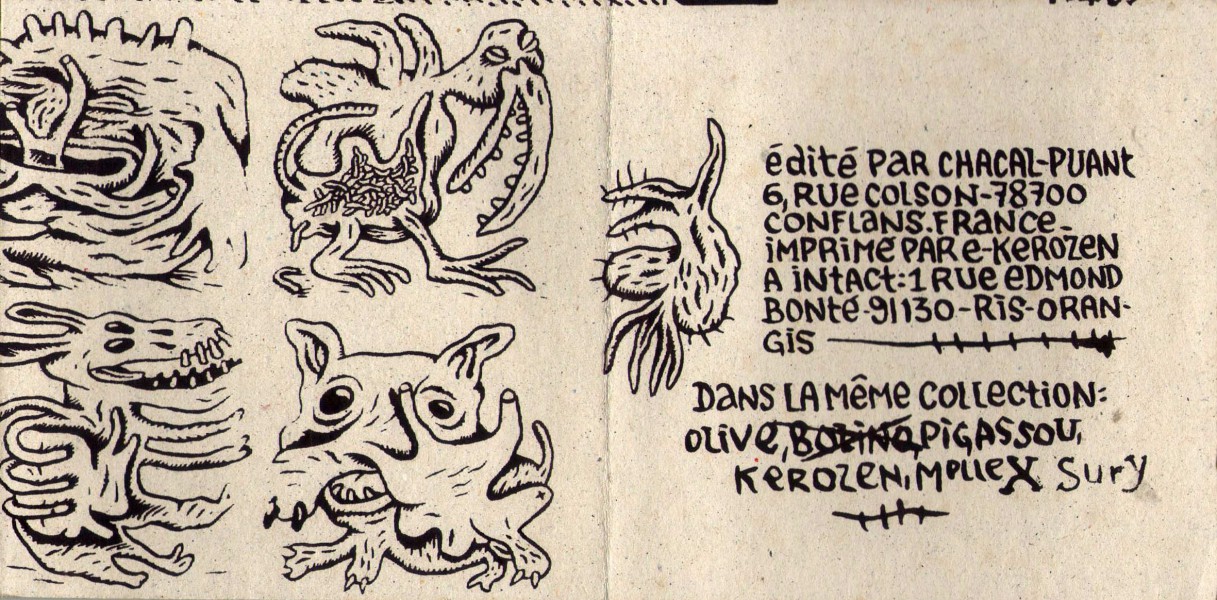 édité PAR CHACAL-PUANt
6, RUE COLSON-78700
CONFLANS. FRANCE-
iMPRiMé PAR e-KEROZEN
A iNtACt: 1 RUE eDMOND
BONté-91130-RiS-ORAN-
GiS
DANS LA MêMe COLLeCtiON:
OLiVe, BOZiNO, PiGASSOU,
KEROZEN, MelleX Sury